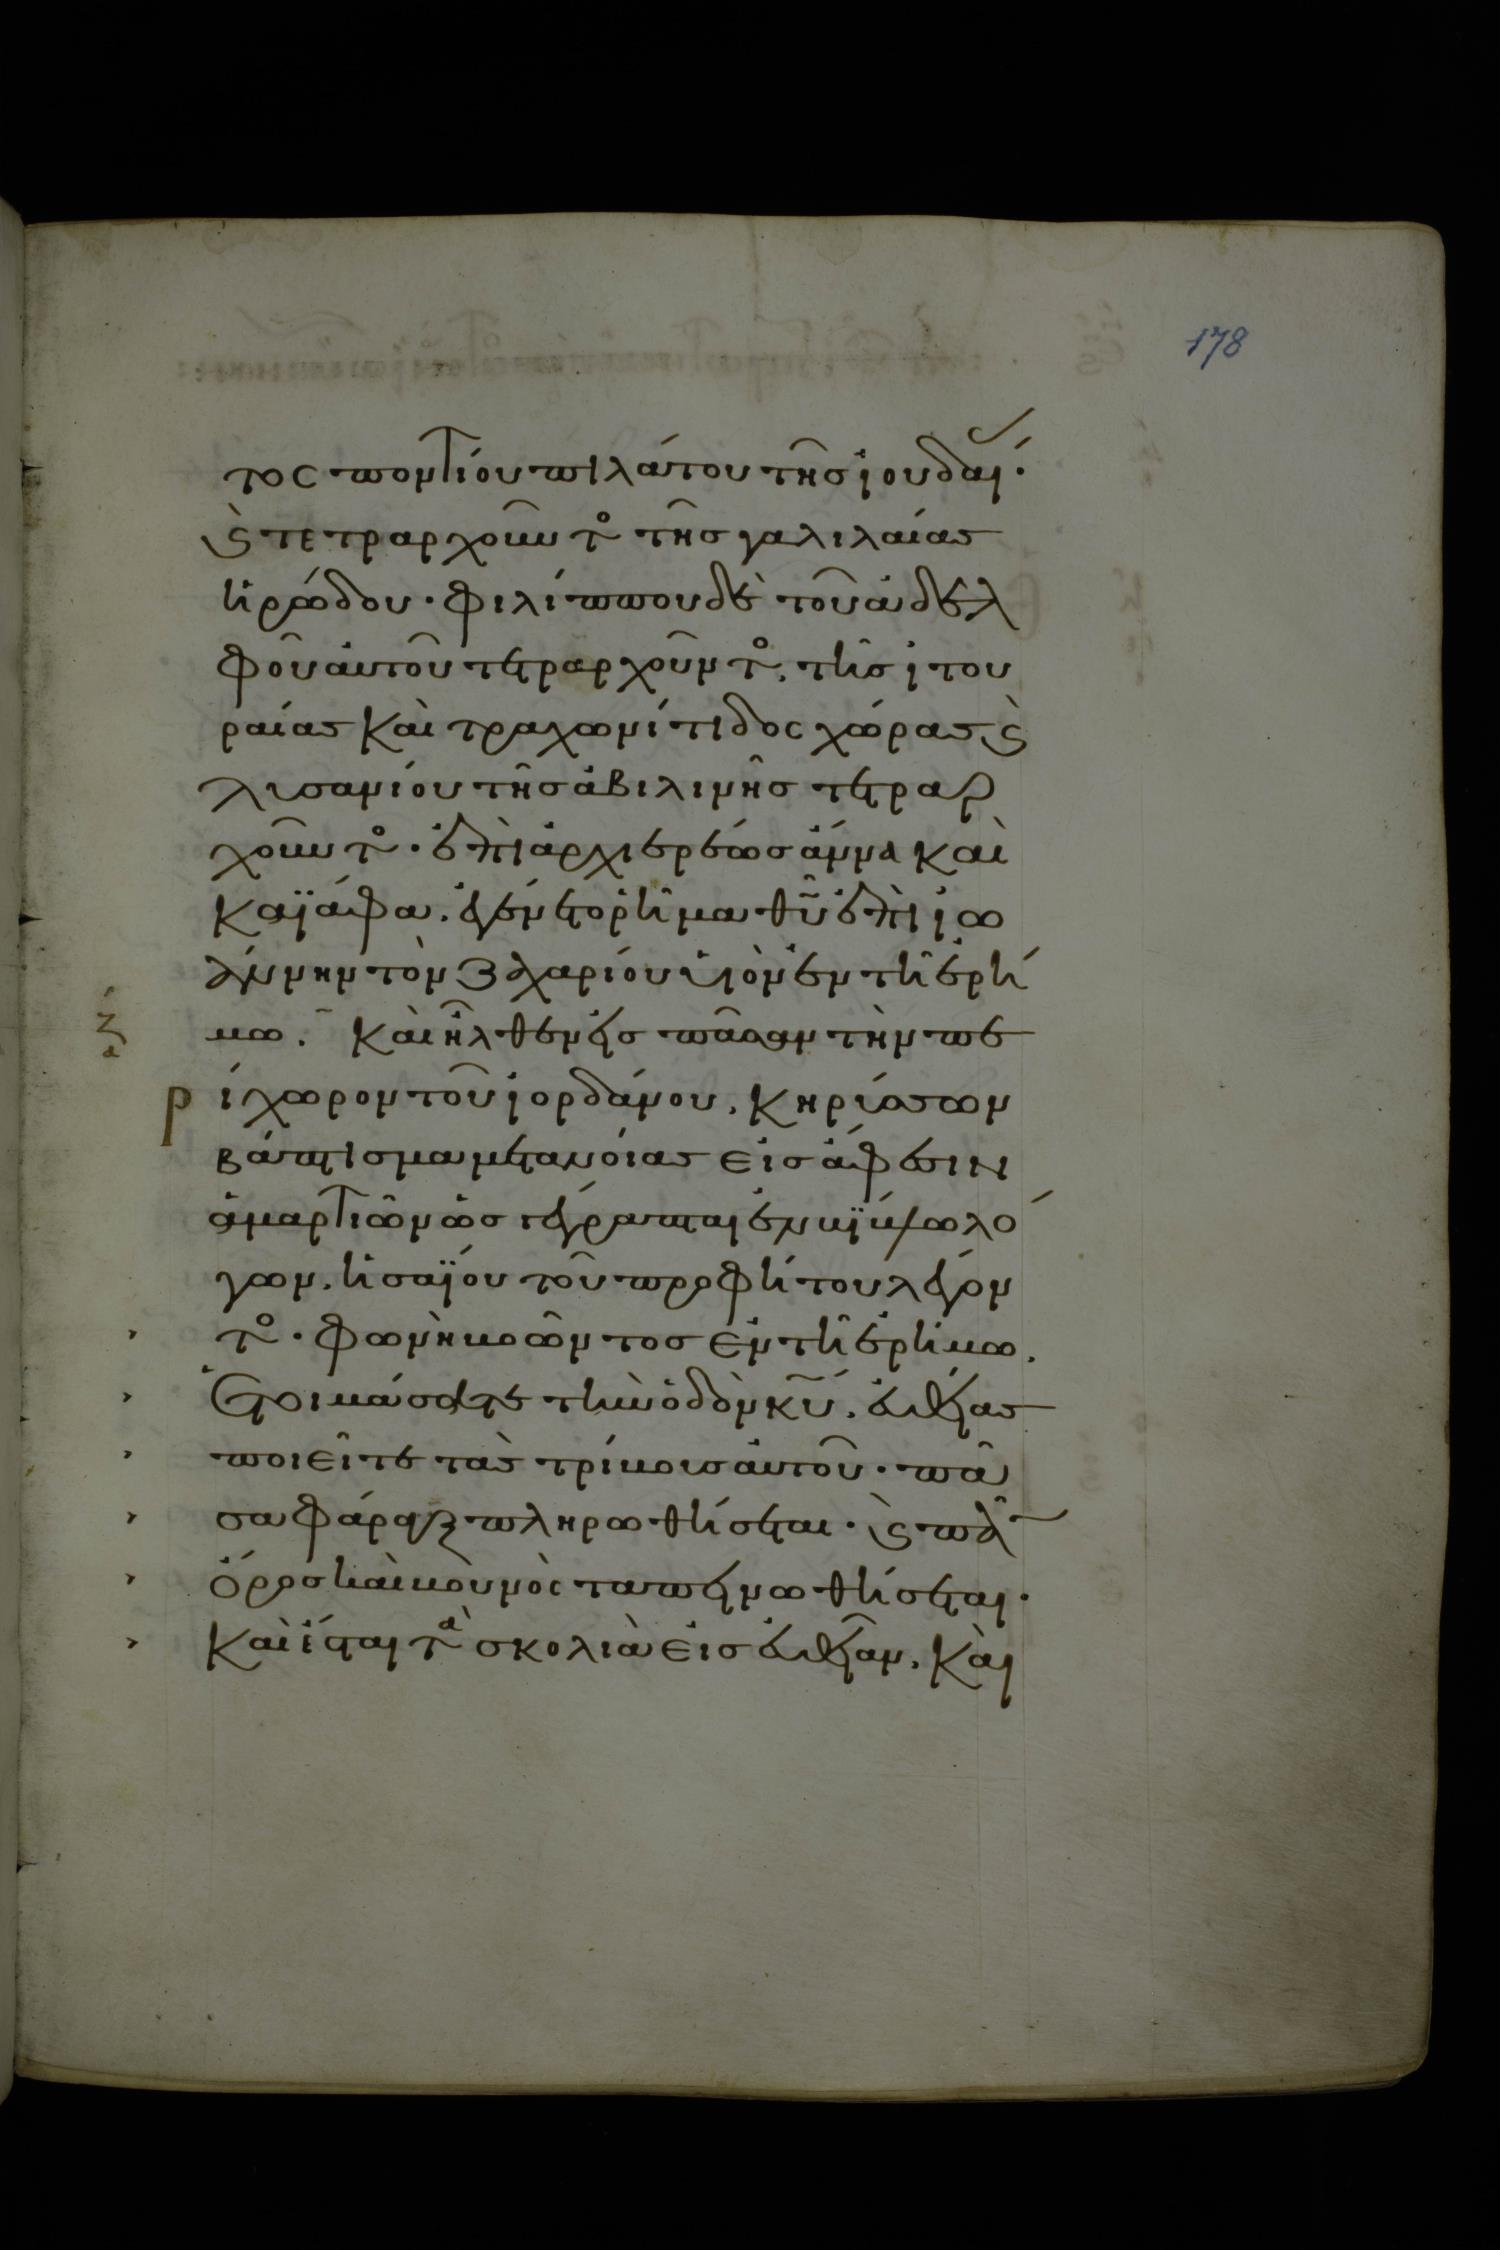 178
τος ποντίου πιλάτου τῆς ἰουδαί·
ϗ̀ τετραρχοῦντο τῆς γαλιλαίας
ἡρώδου· φιλίππου δὲ τοῦ ἀδελ
φοῦ αὐτοῦ τετραρχοῦντο, τῆς ἰτου
ραίας καὶ τραχωνίτιδος χώρας ϗ̀
λυσανίου τῆς ἀβιλινῆς τετραρ
χοῦντο· ἐπὶ ἀρχιερέως ἄννα καὶ
καϊάφα. ἐγένετο ῥῆμα θῡ ἐπὶ ἰω
άννην τὸν ζαχαρίου υἱὸν ἐν τῇ ἐρή
μω. καὶ ἦλθεν εἰς πᾶσαν τὴν πε
ρίχωρον τοῦ ἰορδάνου, κηρύσσων
βάπτισμα μετανοίας εἰς ἄφεσιν
ἁμαρτιῶν ὡς γέγραπται ἐν βίβλω λό
γων, ἡσαΐου τοῦ προφήτου λέγον
το· φωνὴ βοῶντος ἐν τῇ ἐρήμω.
ἑτοιμάσατε τὴν ὁδὸν κῡ, εὐθείας
ποιεῖτε τὰς τρίβους αὐτοῦ· πᾶ
σα φάραγξ πληρωθήσεται· ϗ̀ πᾶ
ὄρος καὶ βουνὸς ταπεινωθήσεται·
καὶ ἔσται τὰ σκολιὰ εἰς εὐθεῖαν, καὶ